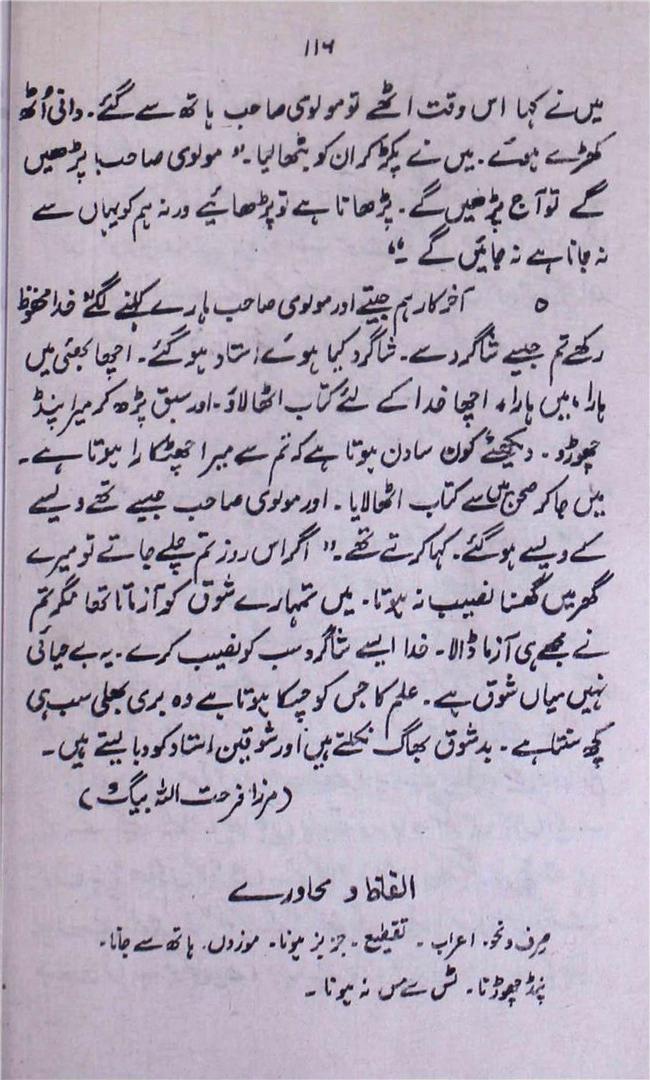 ۱۱۶
میں نے کہا اس وقت اٹھے تو مولوی صاحب ہاتھ سے گئے۔ دانی اُٹھ
کھڑے ہوئے۔ میں نے پکڑ کر ان کو بٹھا لیا۔ " مولوی صاحب! پڑھیں
گے تو آج پڑھیں گے۔ پڑھانا ہے تو پڑھائیے ورنہ ہم کو یہاں سے
نہ جانا ہے نہ جائیں گے ۔"
آخر کار ہم جیتے اور مولوی صاحب ہارے کہنے لگے" خدا محفوظ
رکھے تم جیسے شاگرد سے۔ شاگرد کیا ہوئے استاد ہو گئے۔ اچھا بھئی میں
ہارا، میں ہارا، اچھا خدا کے لئے کتاب اٹھا لاؤ۔ اور سبق پڑھ کر میرا پنڈ
چھوڑو۔ دیکھئے کون سا دن ہوتا ہے کہ تم سے میرا چھٹکارا ہوتا ہے۔
میں جا کر صحن میں سے کتاب اٹھا لایا۔ اور مولوی صاحب جیسے تھے ویسے
کے ویسے ہو گئے۔ کہا کرتے تھے۔ " اگر اس روز تم چلے جاتے تو میرے
گھر میں گھسنا نصیب نہ ہوتا۔ میں تمہارے شوق کو آزماتا تھا مگر تم
نے مجھے ہی آزما ڈالا۔ خدا ایسے شاگرد سب کو نصیب کرے۔ یہ بے حیائی
نہیں میاں شوق ہے۔ علم کا جس کو چسکا ہوتا ہے وہ بری بھلی سب ہی
کچھ سنتا ہے۔ بد شوق بھاگ نکلتے ہیں اور شوقین استاد کو دبا لیتے ہیں۔
(مرزا فرحت اللہ بیگ)
الفاظ و محاورے
صرف و نحو۔ اعراب ۔ تقطیع ۔ جزبز ہونا۔ موزوں۔ ہاتھ سے جانا۔
پنڈ چھوڑنا۔ ٹس سے مس نہ ہونا ۔